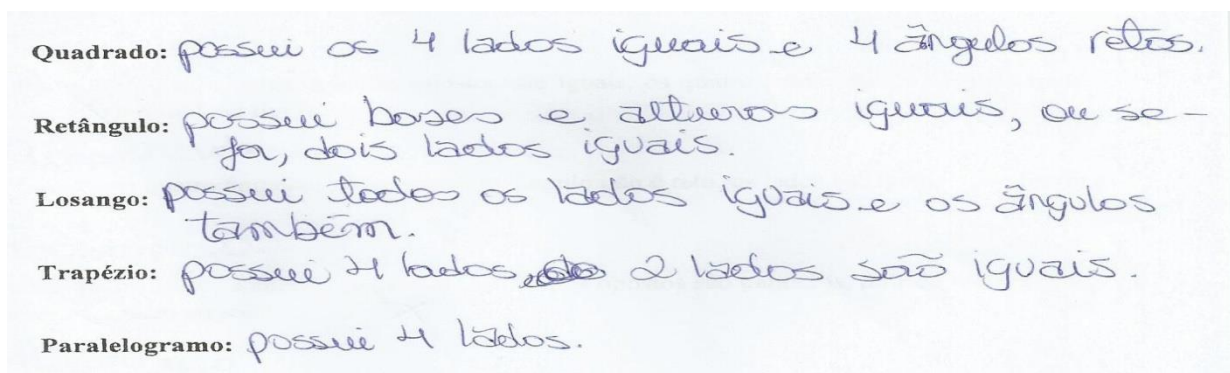 Quadrado: possui os 4 lados iguais e 4 ângulos retos.
Retângulo: possui bases e alturas iguais, ou se-
ja, dois lados iguais.
Losango: possui todos os lados iguais e os ângulos
também.
Trapézio: possui 4 lados, 2 lados são iguais.
Paralelogramo: possui 4 lados.